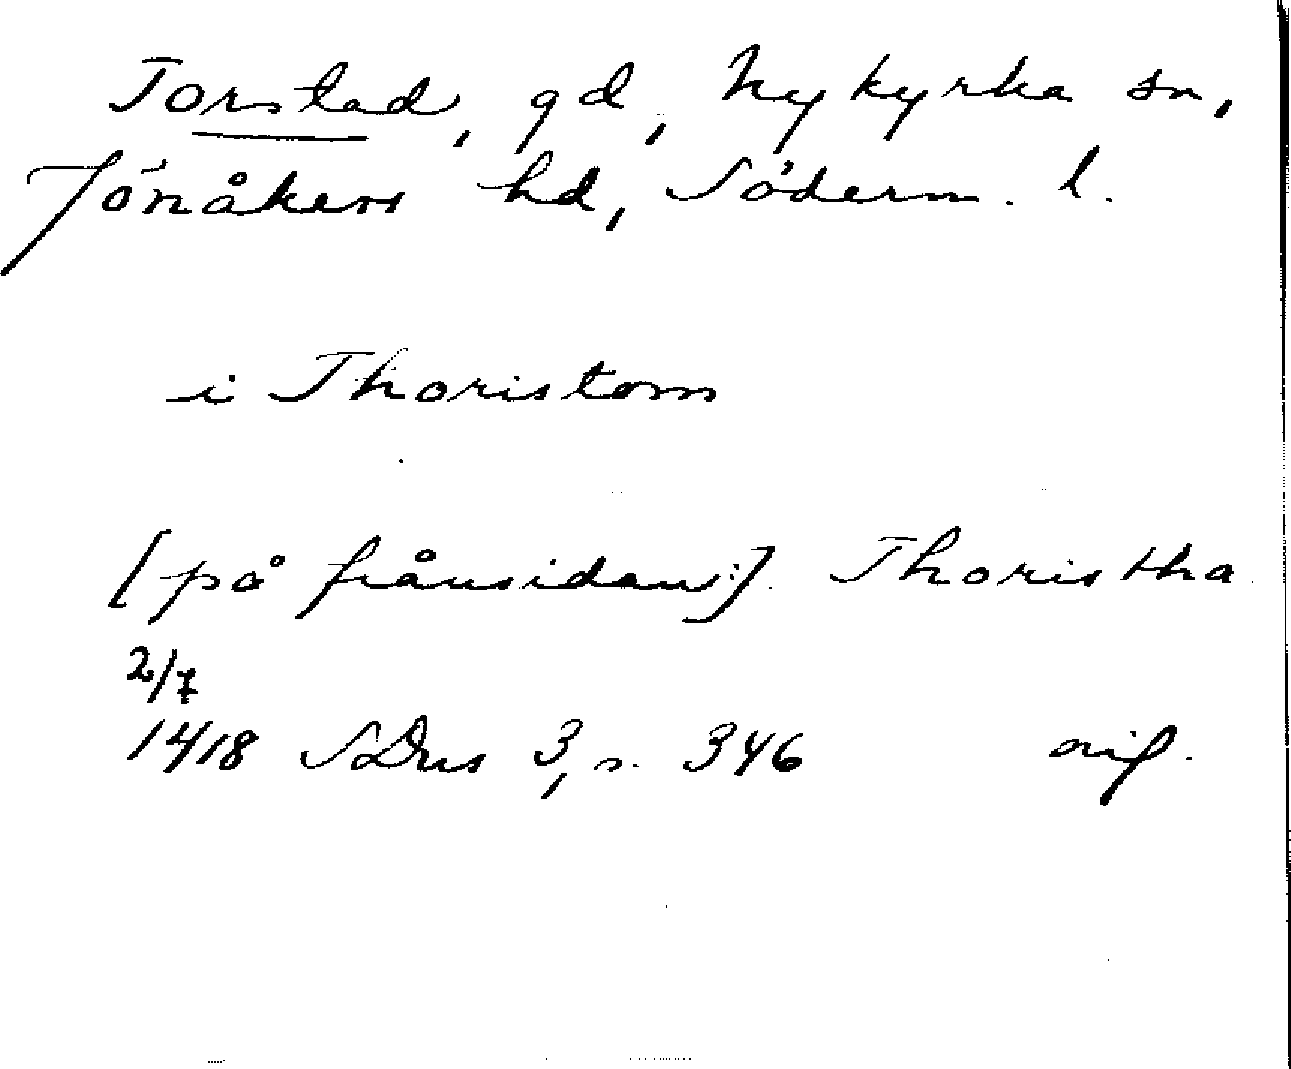 Torstad, gd, Nykyrka sn,
Jönåkers hd, Söderm. l.
i Thoristom
[på frånsidan:]. Thoristha
2/7
1418 SDns 3, s. 346